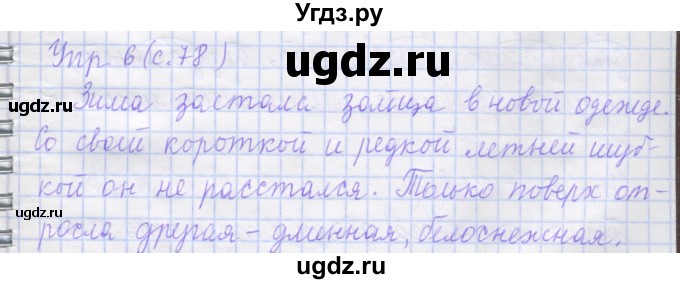 Угдз.ру
ugdz.ru
Упр 6 (с.78)
Зима застала зайца в новой одежде.
Со своей короткой и редкой летней шуб-
кой он не расстался. Только поверх от-
росла другая - длинная, белоснежная.
ugdz.ru
ugdz.ru